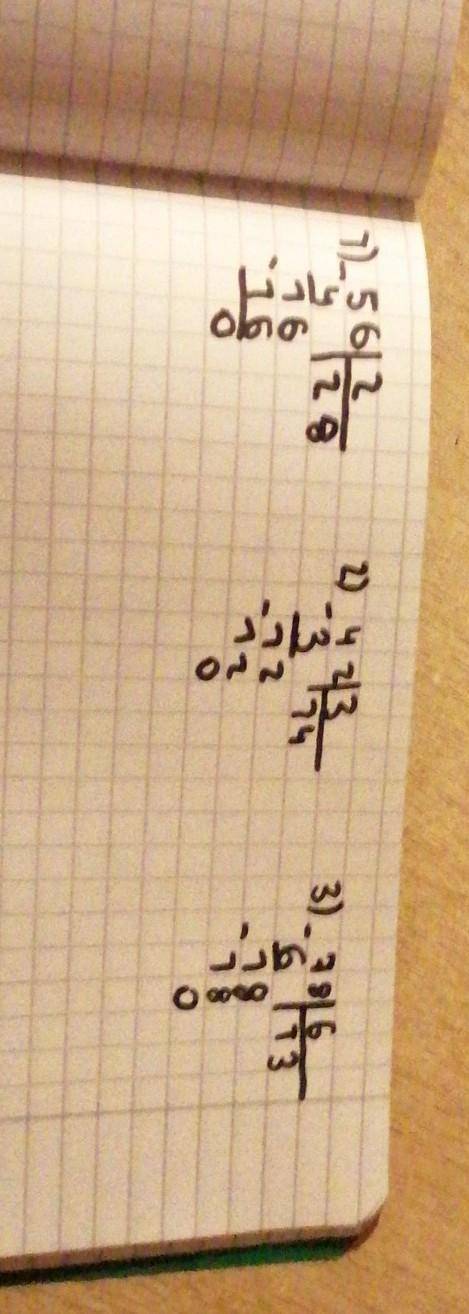 1) -56|2
4 |28
16
-16
0
2) -42|3
3 |14
-12
12
0
3) -78|6
6 |13
-18
18
0